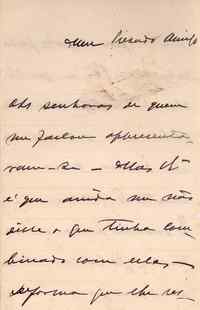 Meu Presado Amigo
As senhoras de quem
me fallou apresenta
ram-se — Mas
é que ainda me não
disse o que tinha com
binado com ellas —
De forma que lhe